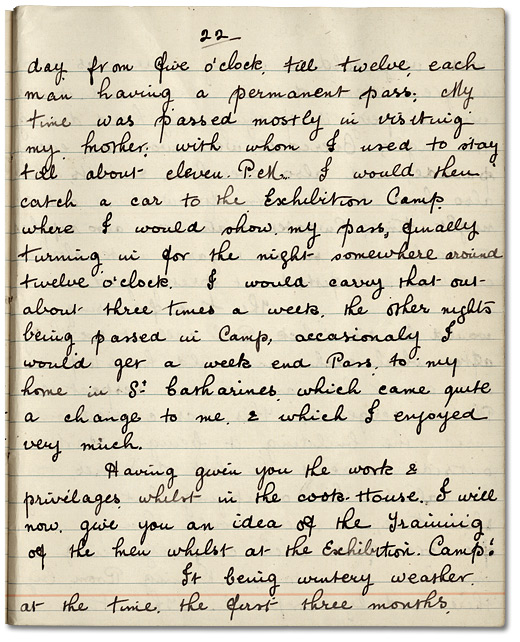 22
day from five o'clock, till twelve, each
man having a permanent pass; My
time was passed mostly in visiting
my Mother; with whom I used to stay
till about eleven P.M. I would then
catch a car to the Exhibition Camp
where I would show my pass, finally
turning in for the night somewhere around
twelve o'clock. I would carry that out
about three times a week, the other nights
being passed in Camp, accasionaly I
would get a week end Pass, to my
home in St Catharines, which came quite
a change to me, & which I enjoyed
very much.
Having given you the work &
privilages whilst in the cook-House, I will
now, give you an idea of the Training
of the Men whilst at the Exhibition Camp:
It being wintery weather,
at the time, the first three months,